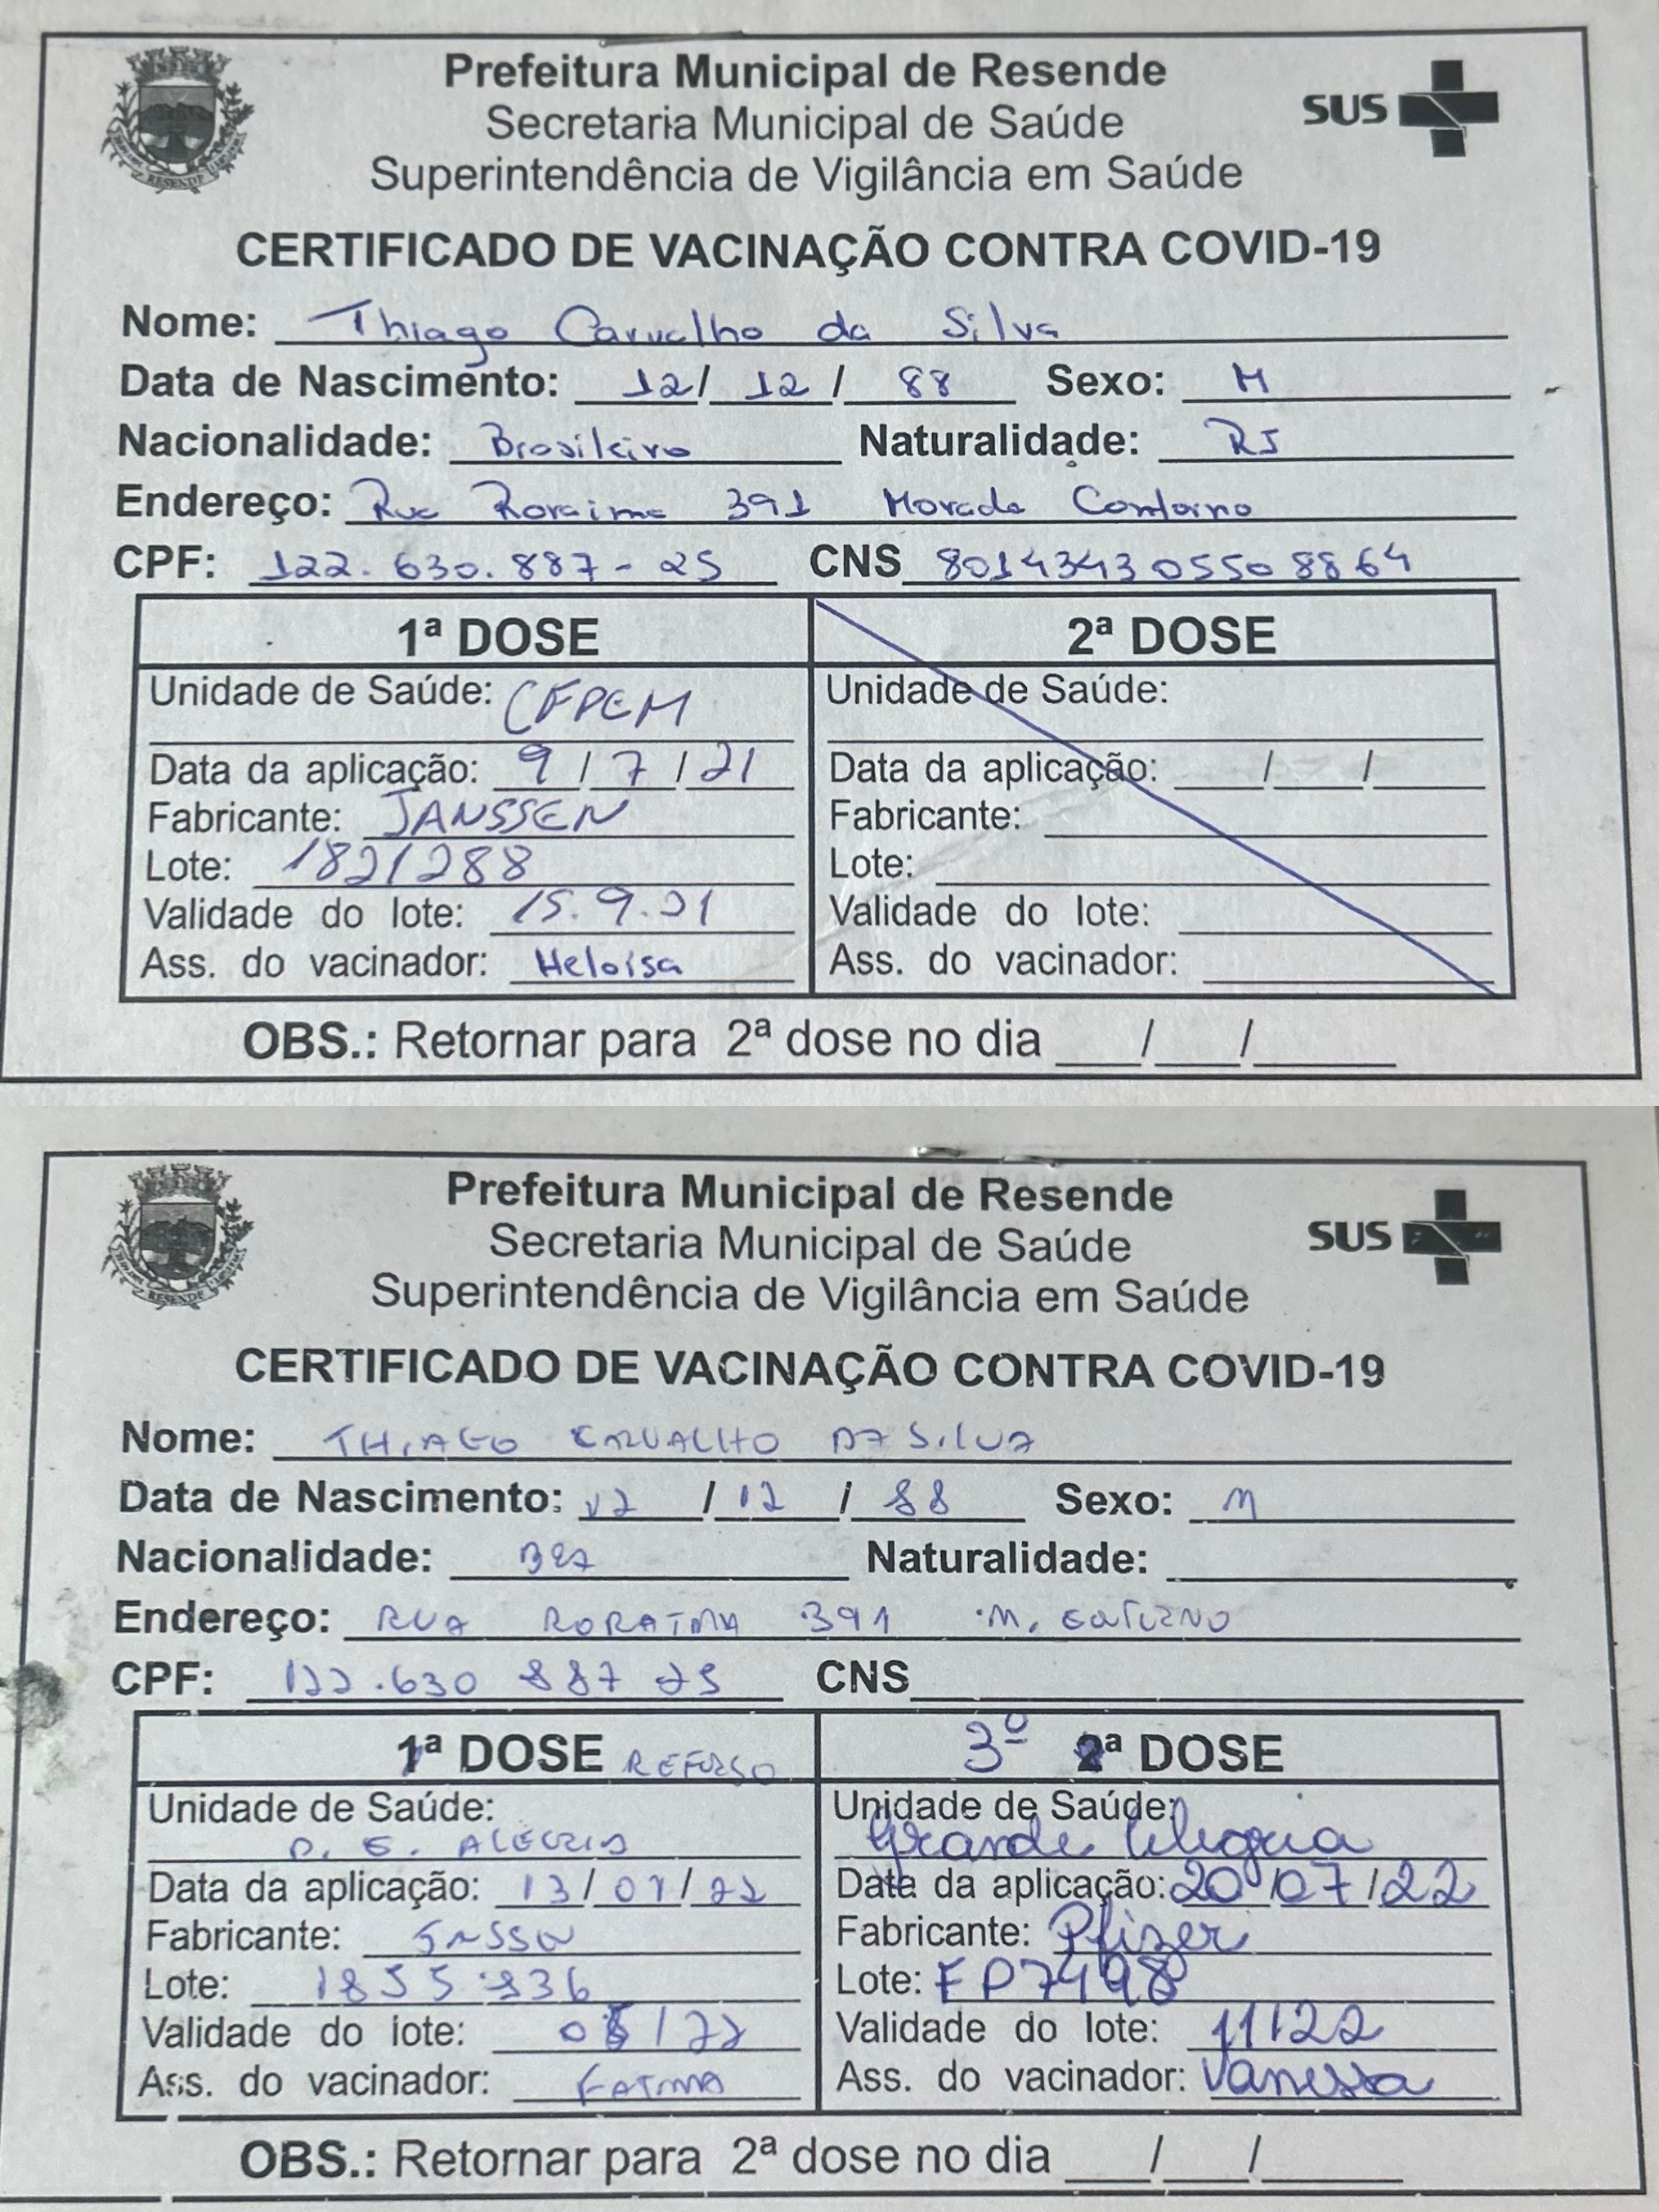 Prefeitura Municipal de Resende
Secretaria Municipal de Saúde
Superintendência de Vigilância em Saúde
SUS
RESENDE
CERTIFICADO DE VACINAÇÃO CONTRA COVID-19
Nome: Thiago Carvalho da Silva
Data de Nascimento: 12/ 12 / 88 Sexo: M
Nacionalidade: Brasileiro Naturalidade: RJ
Endereço: Rua Roraima 391 Morada Contorno
CPF: 122.630.887-25 CNS 801434305508864
1ª DOSE 2ª DOSE
Unidade de Saúde: CEPEM Unidade de Saúde:
Data da aplicação: 9 / 7 / 21 Data da aplicação: / /
Fabricante: JANSSEN Fabricante:
Lote: 1821288 Lote:
Validade do lote: 15.9.21 Validade do lote:
Ass. do vacinador: Heloisa Ass. do vacinador:
OBS.: Retornar para 2ª dose no dia / /
Prefeitura Municipal de Resende
Secretaria Municipal de Saúde
Superintendência de Vigilância em Saúde
SUS
RESENDE
CERTIFICADO DE VACINAÇÃO CONTRA COVID-19
Nome: THIAGO CARVALHO DA SILVA
Data de Nascimento: 12 / 12 / 88 Sexo: M
Nacionalidade: BRA Naturalidade:
Endereço: RUA RORAIMA 391 M.
CPF: 122.630 887 25 CNS
1ª DOSE REFORSO 3º 2ª DOSE
Unidade de Saúde: Unidade de Saúde:
ALEGRIA Grande Alegria
Data da aplicação: 13/ 01 / 22 Data da aplicação: 20/07/22
Fabricante: Fabricante: Pfizer
Lote: 1855836 Lote: FP7498
Validade do lote: Validade do lote: 11/22
Ass. do vacinador: FATIMA Ass. do vacinador: Vanessa
OBS.: Retornar para 2ª dose no dia / /